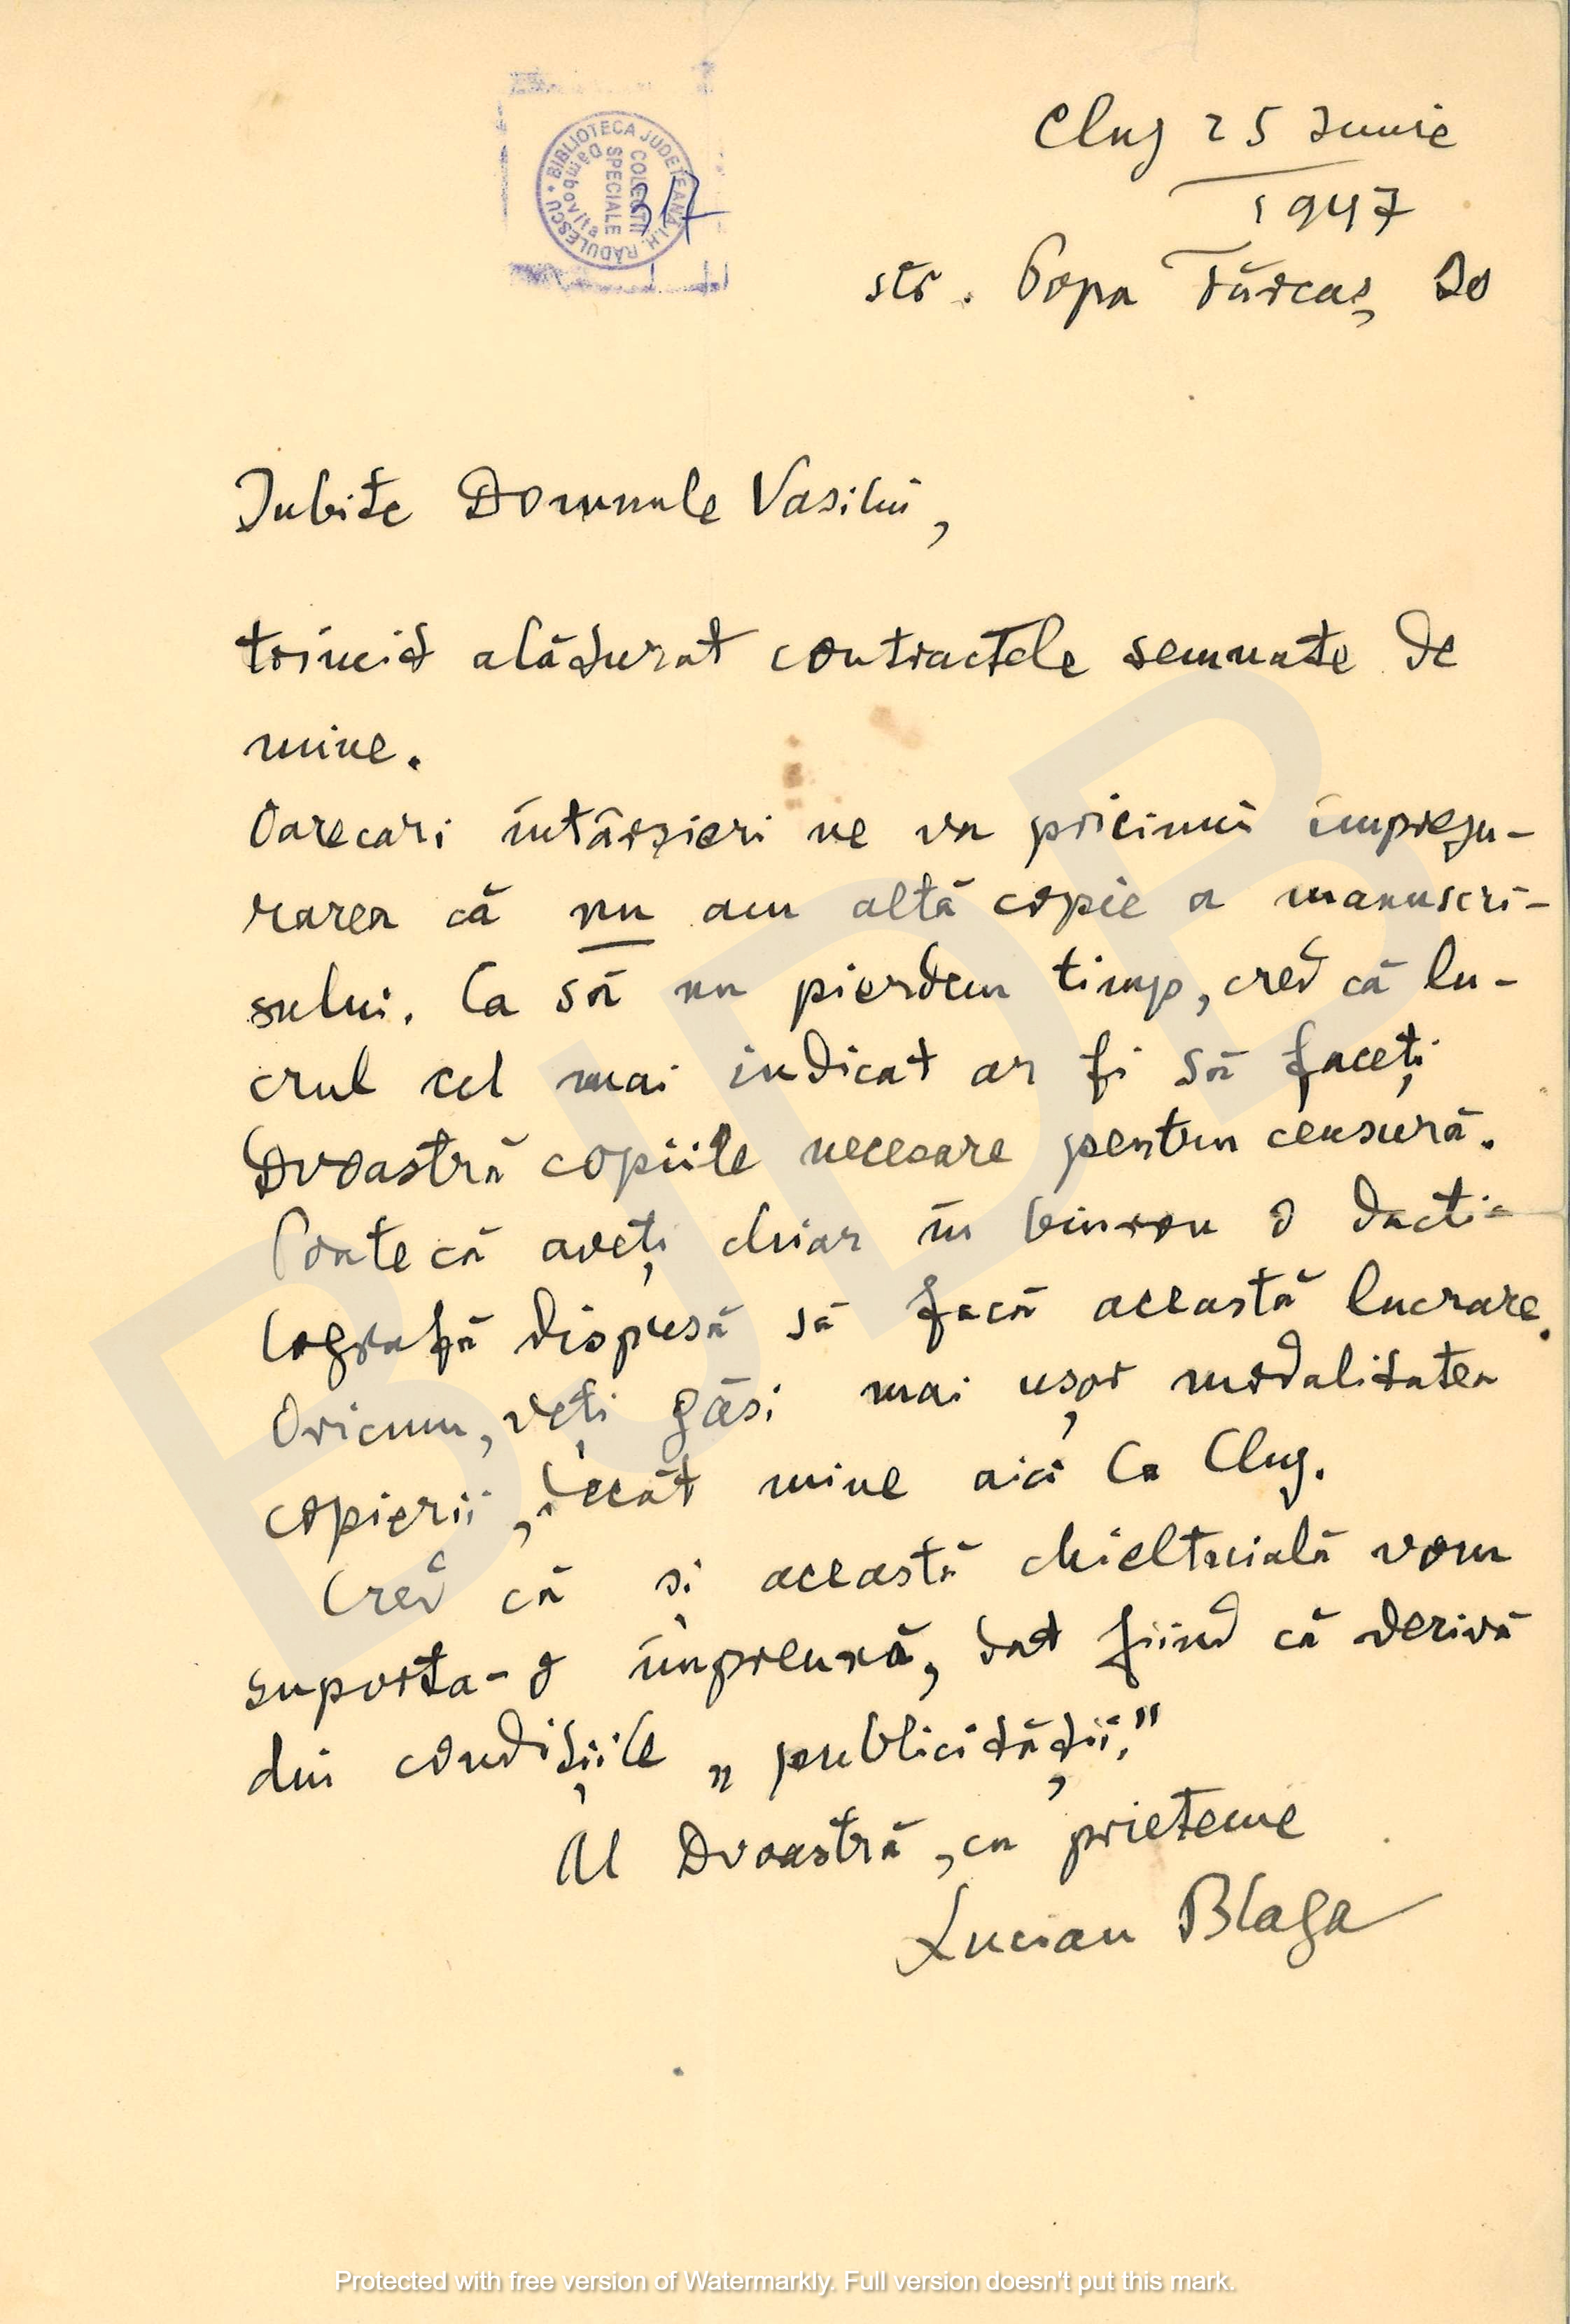 BIBLIOTECA JUDEŢEANĂ I.H. RĂDULESCU • Dâmboviţa
COLECŢII
SPECIALE
37
Cluj 25 Iunie
1947
str. Popa Tărcaș, 20
Iubite Domnule Vasiliu,
trimit alăturat contractele semnate de
mine.
Oarecari întârzieri ne va pricinui împregu-
rarea că nu am altă copie a manuscri-
sului. Ca să nu pierdem timp, cred că lu-
crul cel mai indicat ar fi să faceți
Dvoastră copiile necesare pentru censură.
Poate că aveți chiar în birou o dacti-
lografă dispusă să facă această lucrare.
Oricum, veți găsi mai ușor modalitatea
copierii, decât mine aici la Cluj.
Cred că și această chieltuială vom
suporta-o împreună, dat fiind că derivă
din condițiile „publicității."
Al Dvoastră, cu prietenie
Lucian Blaga
BJDB
Protected with free version of Watermarkly. Full version doesn't put this mark.